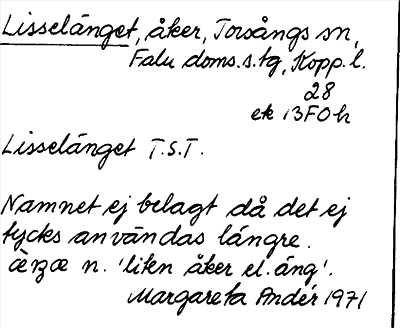 Lisselänget, åker, Torsångs sn,
Falu doms.s.tg, Kopp.l.
28
ek 13F0h
Lisselänget T.S.T.
Namnet ej belagt då det ej
tycks användas längre.
n. 'liten åker el. äng'.
Margareta Andér 1971